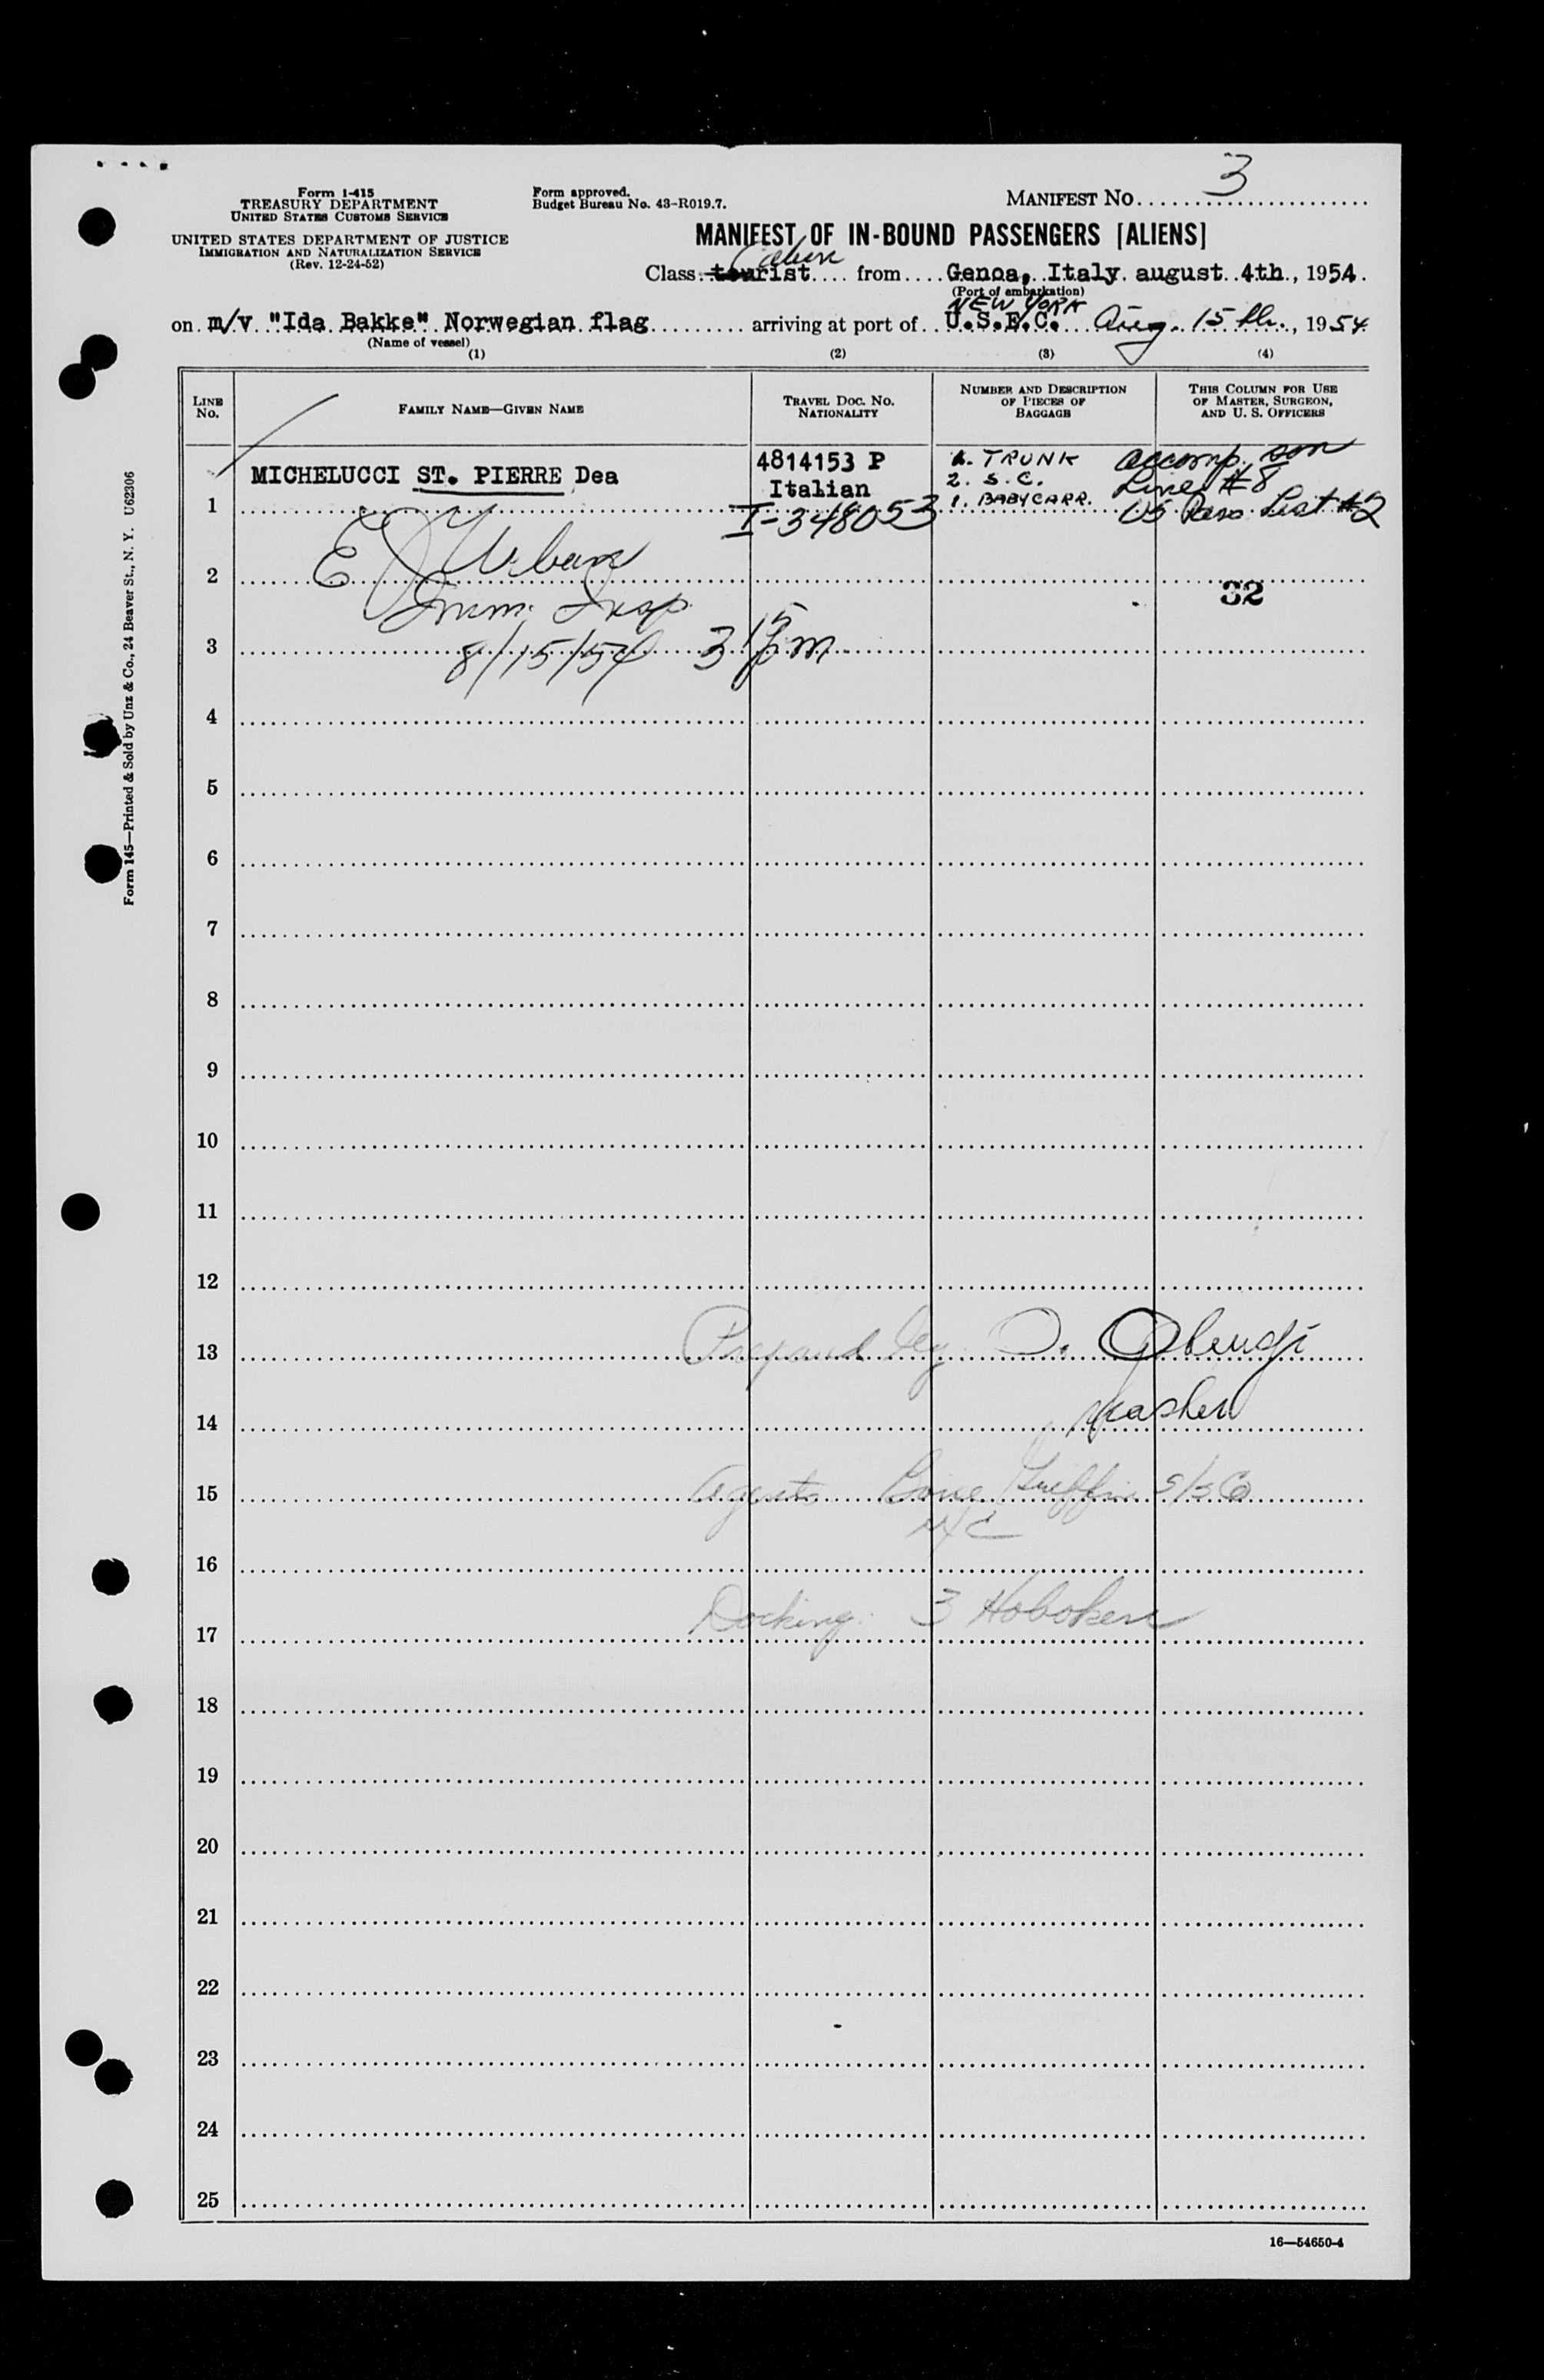 Form I-415
TREASURY DEPARTMENT
UNITED STATES CUSTOMS SERVICE
UNITED STATES DEPARTMENT OF JUSTICE
IMMIGRATION AND NATURALIZATION SERVICE
(Rev. 12-24-52)
Form approved.
Budget Bureau No. 43-R019.7.
MANIFEST NO. 3
MANIFEST OF IN-BOUND PASSENGERS [ALIENS]
Cabin
Class tourist from Genoa, Italy august 4th., 1954.
(Port of embarkation)
NEW YORK
on m/v "Ida Bakke" Norwegian flag arriving at port of U.S.E.C. Aug. 15th., 1954
(Name of vessel)
(1) (2) (3) (4)
LINE No. FAMILY NAME—GIVEN NAME TRAVEL DOC. NO. NATIONALITY NUMBER AND DESCRIPTION OF PIECES OF BAGGAGE THIS COLUMN FOR USE OF MASTER, SURGEON, AND U. S. OFFICERS
1 MICHELUCCI ST. PIERRE Dea 4814153 P
Italian
I-348053
TRUNK
2. S.C.
1. BABYCARR.
accomp. son
Line #8
US Pass List #2
2 E J Urban
32
Imm. Insp.
3 8/15/54 3 15 pm
4
5
6
7
8
9
10
11
12
13 Prepared by O.
14
15 Agents Griffin S/S Co
NYC
16
17 Docking: 3 Hoboken
18
19
20
21
22
23
24
25
16—54650-4
Form 145—Printed & Sold by Unz & Co., 24 Beaver St., N. Y. U62306